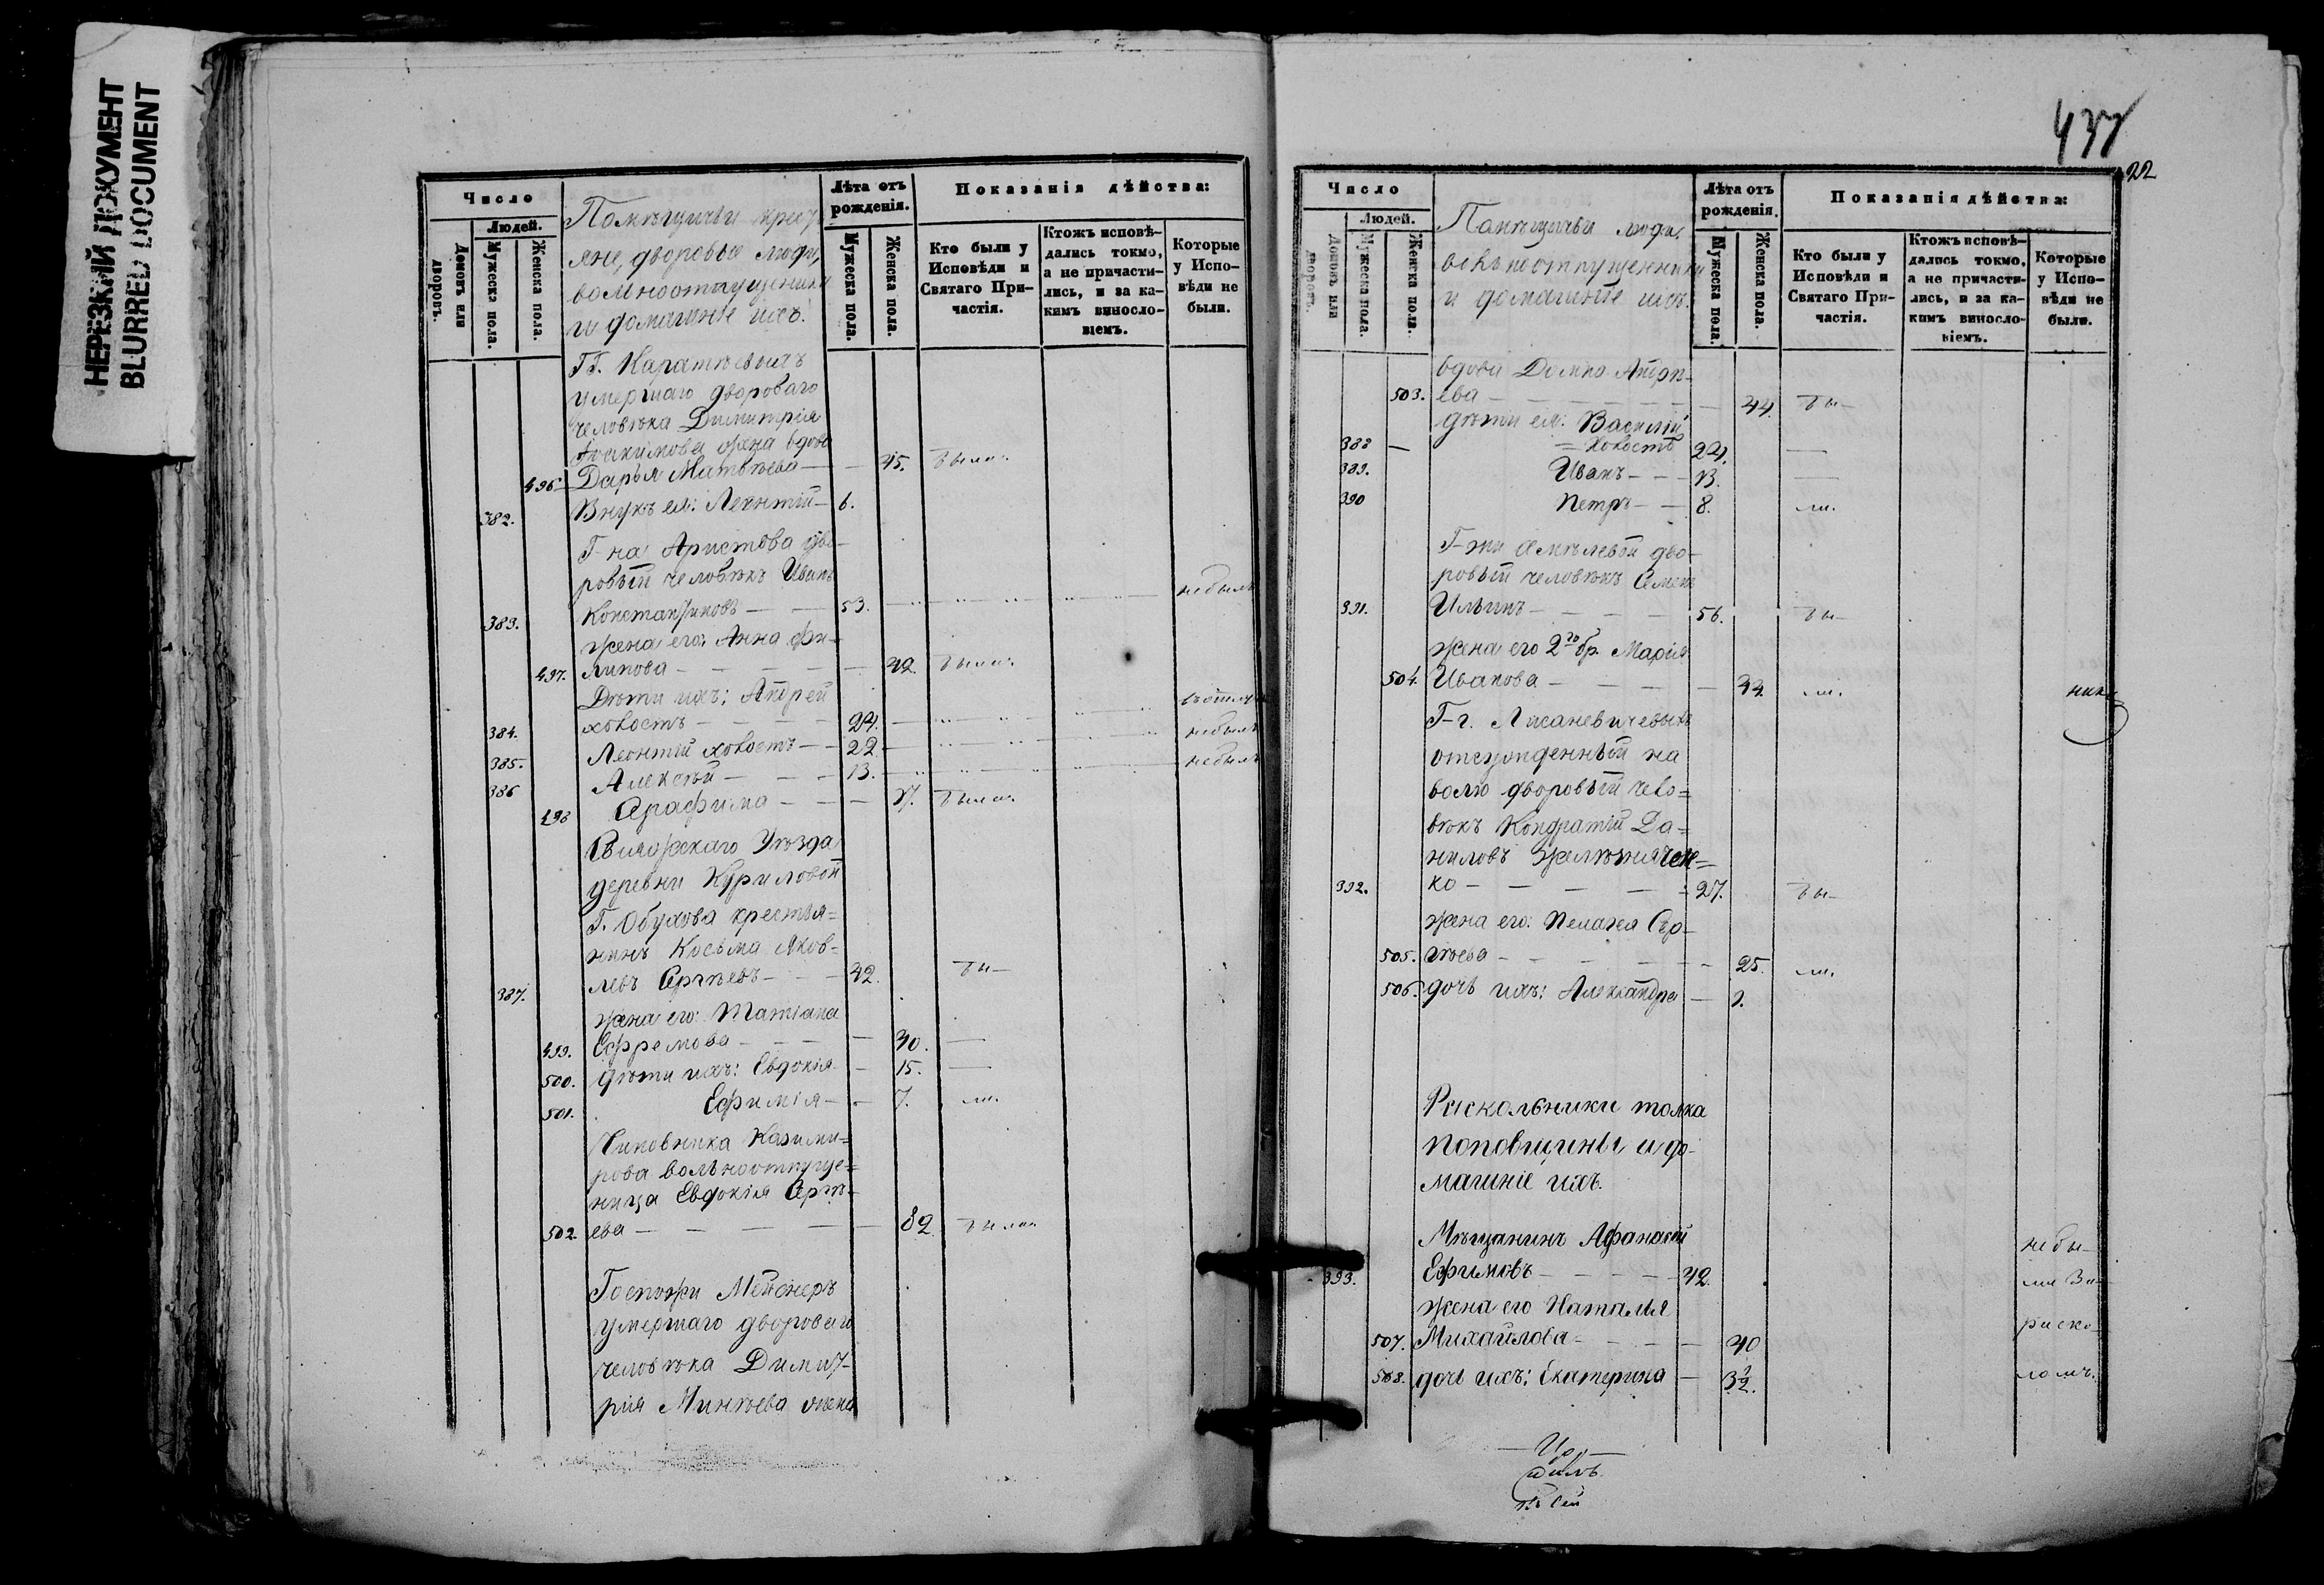 НЕРЕЗКИЙ ДОКУМЕНТ
BLURRED DOCUMENT
Число
Людей.
Домовъ или дворовъ.
Мужеска пола.
Женска пола.
Помѣщичьи крест
яне, дворовые люди,
вольноотпущенники
и домашніе ихъ.
Лѣта отъ рожденія.
Мужеска пола.
Женска пола.
Показанія дѣйства:
Кто были у Исповѣди и Святаго Причастія.
Ктожъ исповѣ-
дались токмо,
а не причасти-
лись, и за ка-
кимъ винословіемъ.
Которые у Исповѣди не были.
умершаго двороваго
человѣка Димитрія
жена вдова
496. Дарья Матвѣева — — 45. была
382. Внукъ ея: Леонтій — 6.
Г-на Аристова дво-
ровый человѣкъ Иванъ
383. Константиновъ — — 53. небылъ
жена его: Анна Фи-
497. липова — — — — 42. была
Дѣти ихъ: Андрей
384. холостъ — — — 24.
385. Леонтій холостъ — — 22. небылъ
386 Алексѣй — — — 13. небылъ
498 Серафима — — — 17. была
Уѣзда
деревни Куриловой
Г. Обухова крестья=
нинъ Косьма Яков=
387. левъ Сергѣевъ — — — 42. бы—
жена его: Татіана
499. Ефремова — — — — 40. —
500. дѣти ихъ: Евдокія — 15. —
501. Ефимія — — 7. ли.
Чиновника Казими=
рова вольноотпуще=
ница Евдокія Сергѣ-
502. ева — — — — — 82 была
Госпожи Мейснеръ
умершаго двороваго
человѣка Димит-
рія Минѣева жена
437
22
Число
Людей.
Домовъ или дворовъ.
Мужеска пола.
Женска пола.
Помѣщичьи люди,
вольноотпущенники
и домашніе ихъ.
Лѣта отъ рожденія.
Мужеска пола.
Женска пола.
Показанія дѣйства:
Кто были у Исповѣди и Святаго Причастія.
Ктожъ исповѣ-
дались токмо,
а не причасти-
лись, и за ка-
кимъ винословіемъ.
Которые у Исповѣди не были.
вдова Домна Андрѣ-
503. ева — — — — — 44. бы—
дѣти ея: Василій
388 — = холостъ 24. —
389. Иванъ — — — 13. —
390 Петръ — — 8. ли.
Г-жи дво-
ровый человѣкъ Семенъ
391. Ильинъ — — — — 56. бы—
жена его 2го бр. Марія
504. Иванова — — — — — 44. ли.
Г-г. Лисаневичевыхъ
отсужденный на
волю дворовый чело=
вѣкъ Кондратій Да=
ниловъ Желѣзнячен=
392. ко — — — — = 27. бы—
жена его: Пелагея Сер-
505. гѣева — — — — — — 25. ли.
506. дочь ихъ: Александра — 1.
Раскольники толка
поповщины и до-
машніе ихъ.
Мѣщанинъ Афанасій
393. Ефимовъ — — — — 42. небы-
жена его Наталья ли за
507. Михайлова — — — — 40 раско-
508. дочь ихъ: Екатерина — 3½. ломъ.